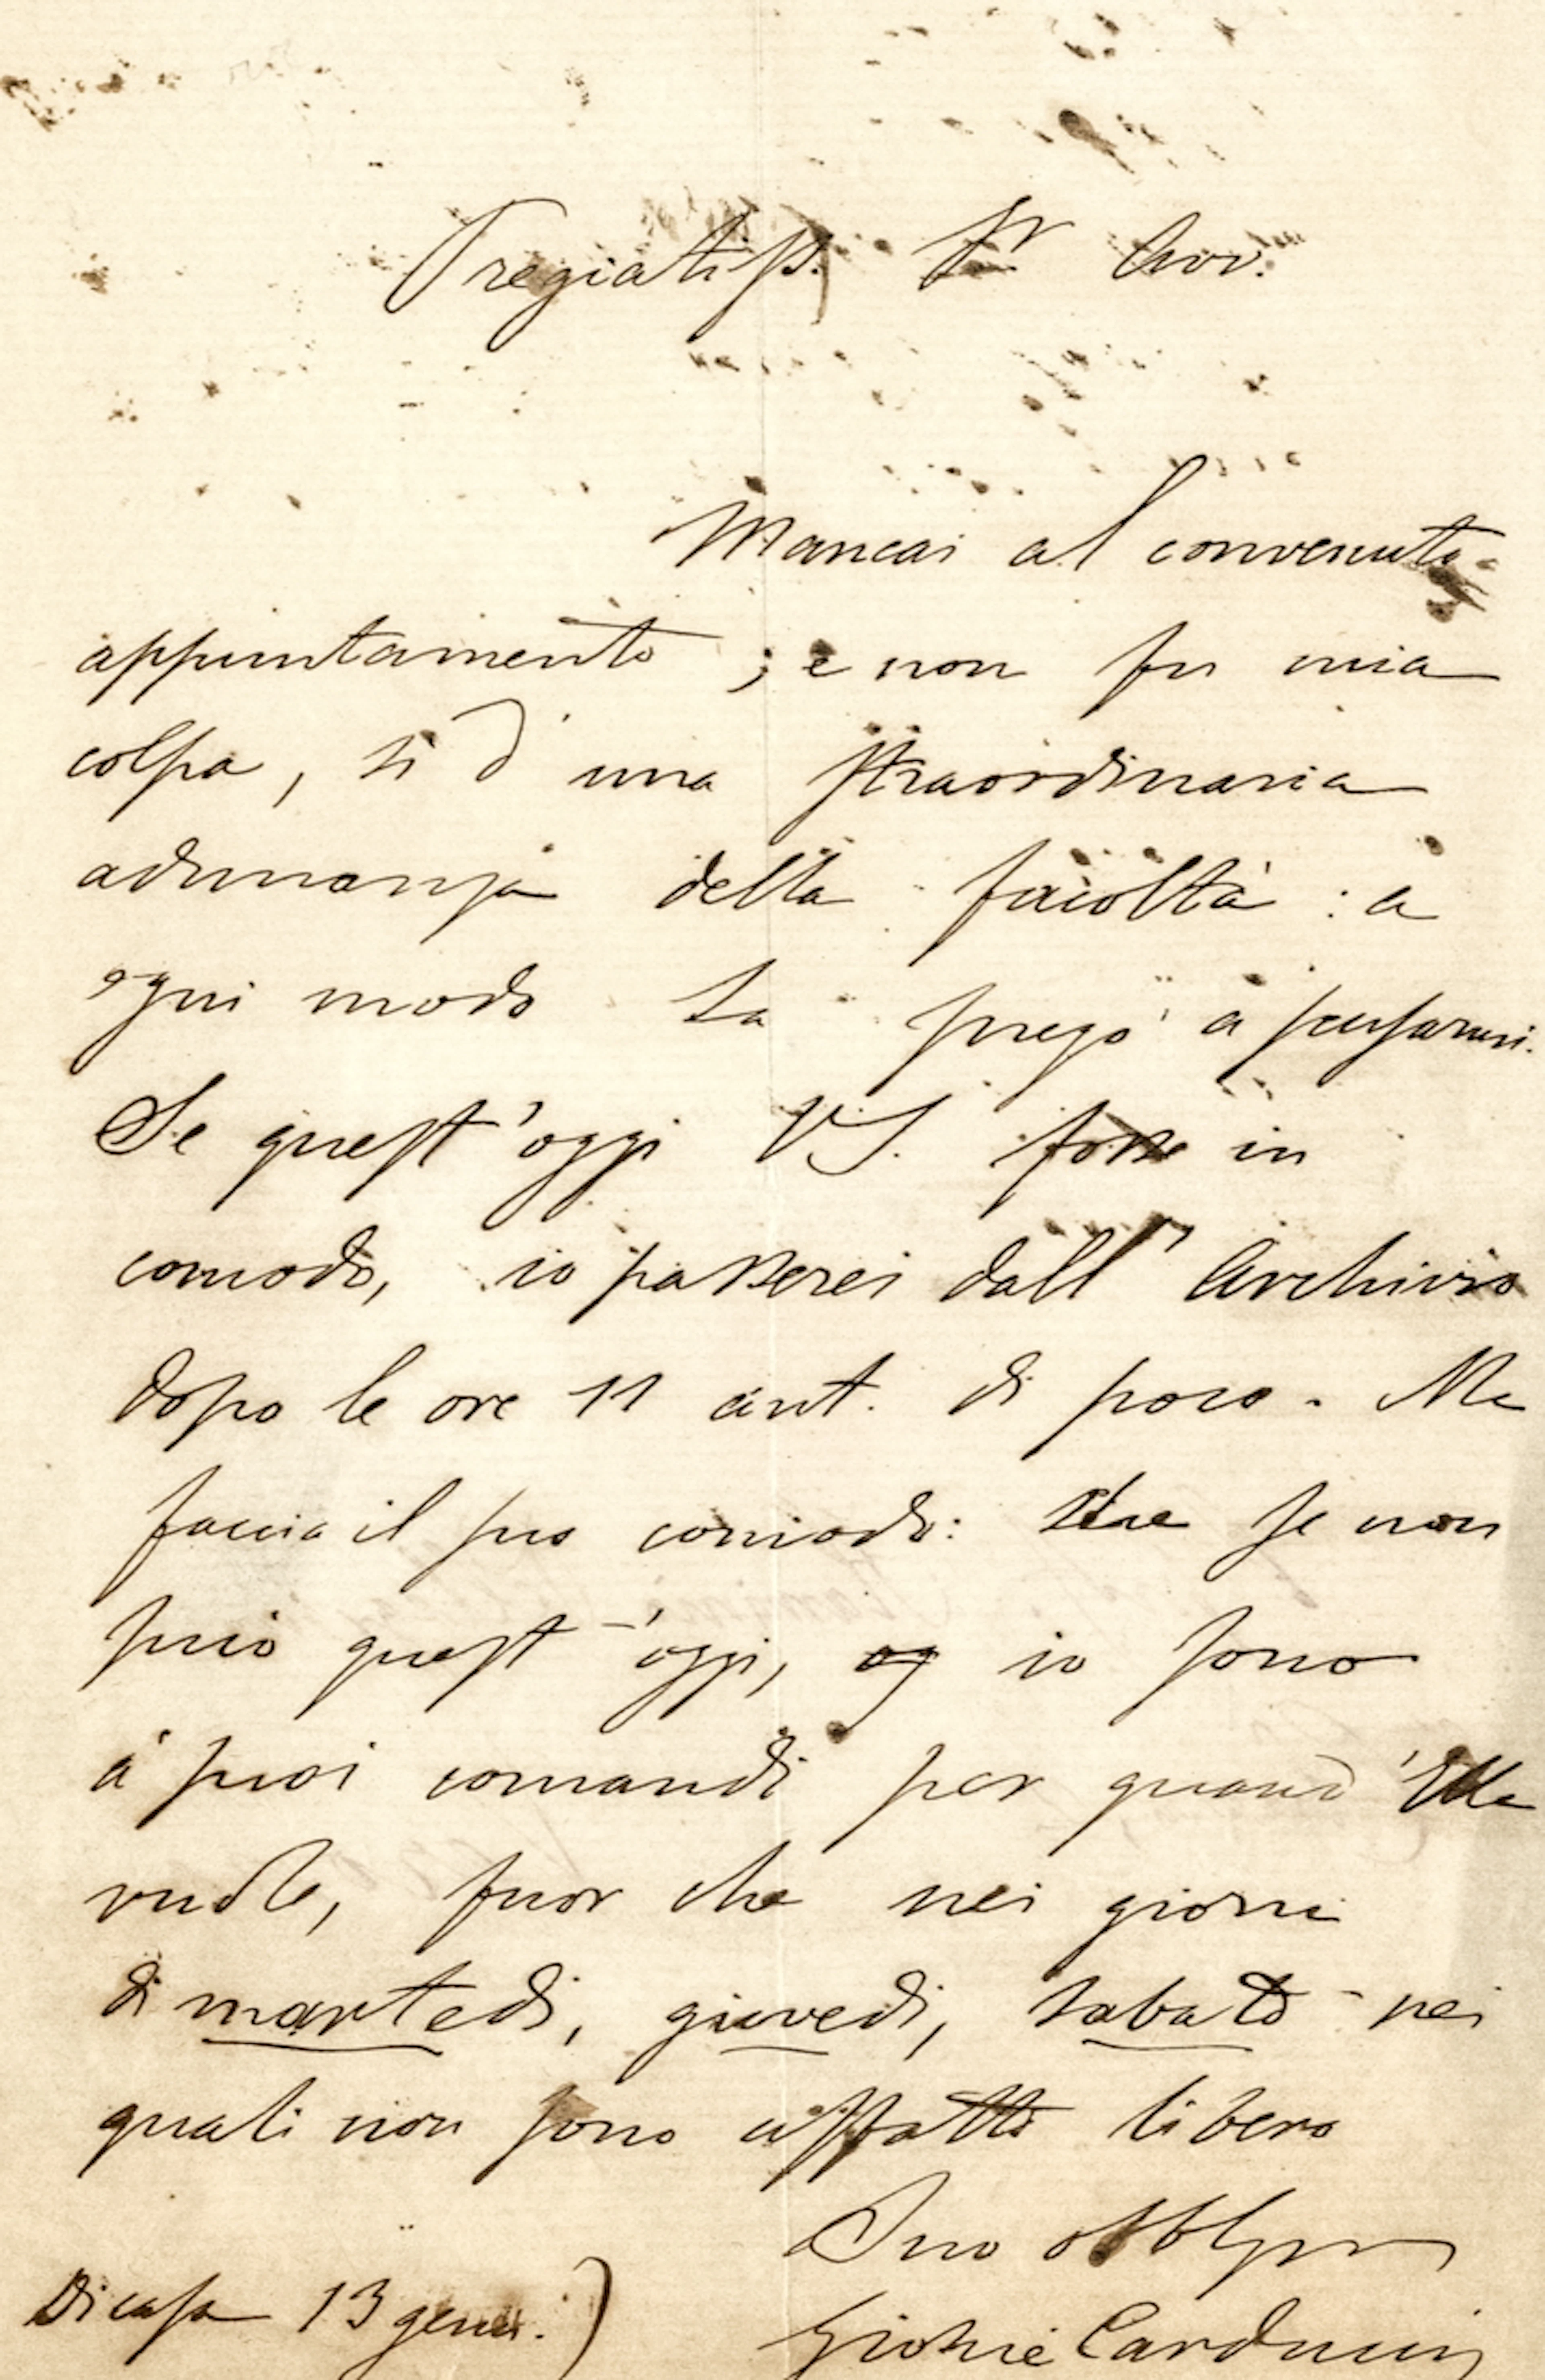 Pregiatiss. Sr. Avv.
Mancai al convenuto
appuntamento; e non fu mia
colpa, sì d'una straordinaria
adunanza della facoltà: a
ogni modo La prego a scusarmi.
Se quest'oggi V.S. fosse in
comodo, io passerei dall'Archivio
dopo le ore 11 ant. di poco. Ma
faccia il suo comodo: che se non
può quest'oggi, og io sono
a' suoi comandi per quand'Ella
vuole, fuor che nei giorni
di martedì, giovedì, sabato nei
quali non sono affatto libero
Suo obblgmo
Di casa 13 genn.)
Giosuè Carducci